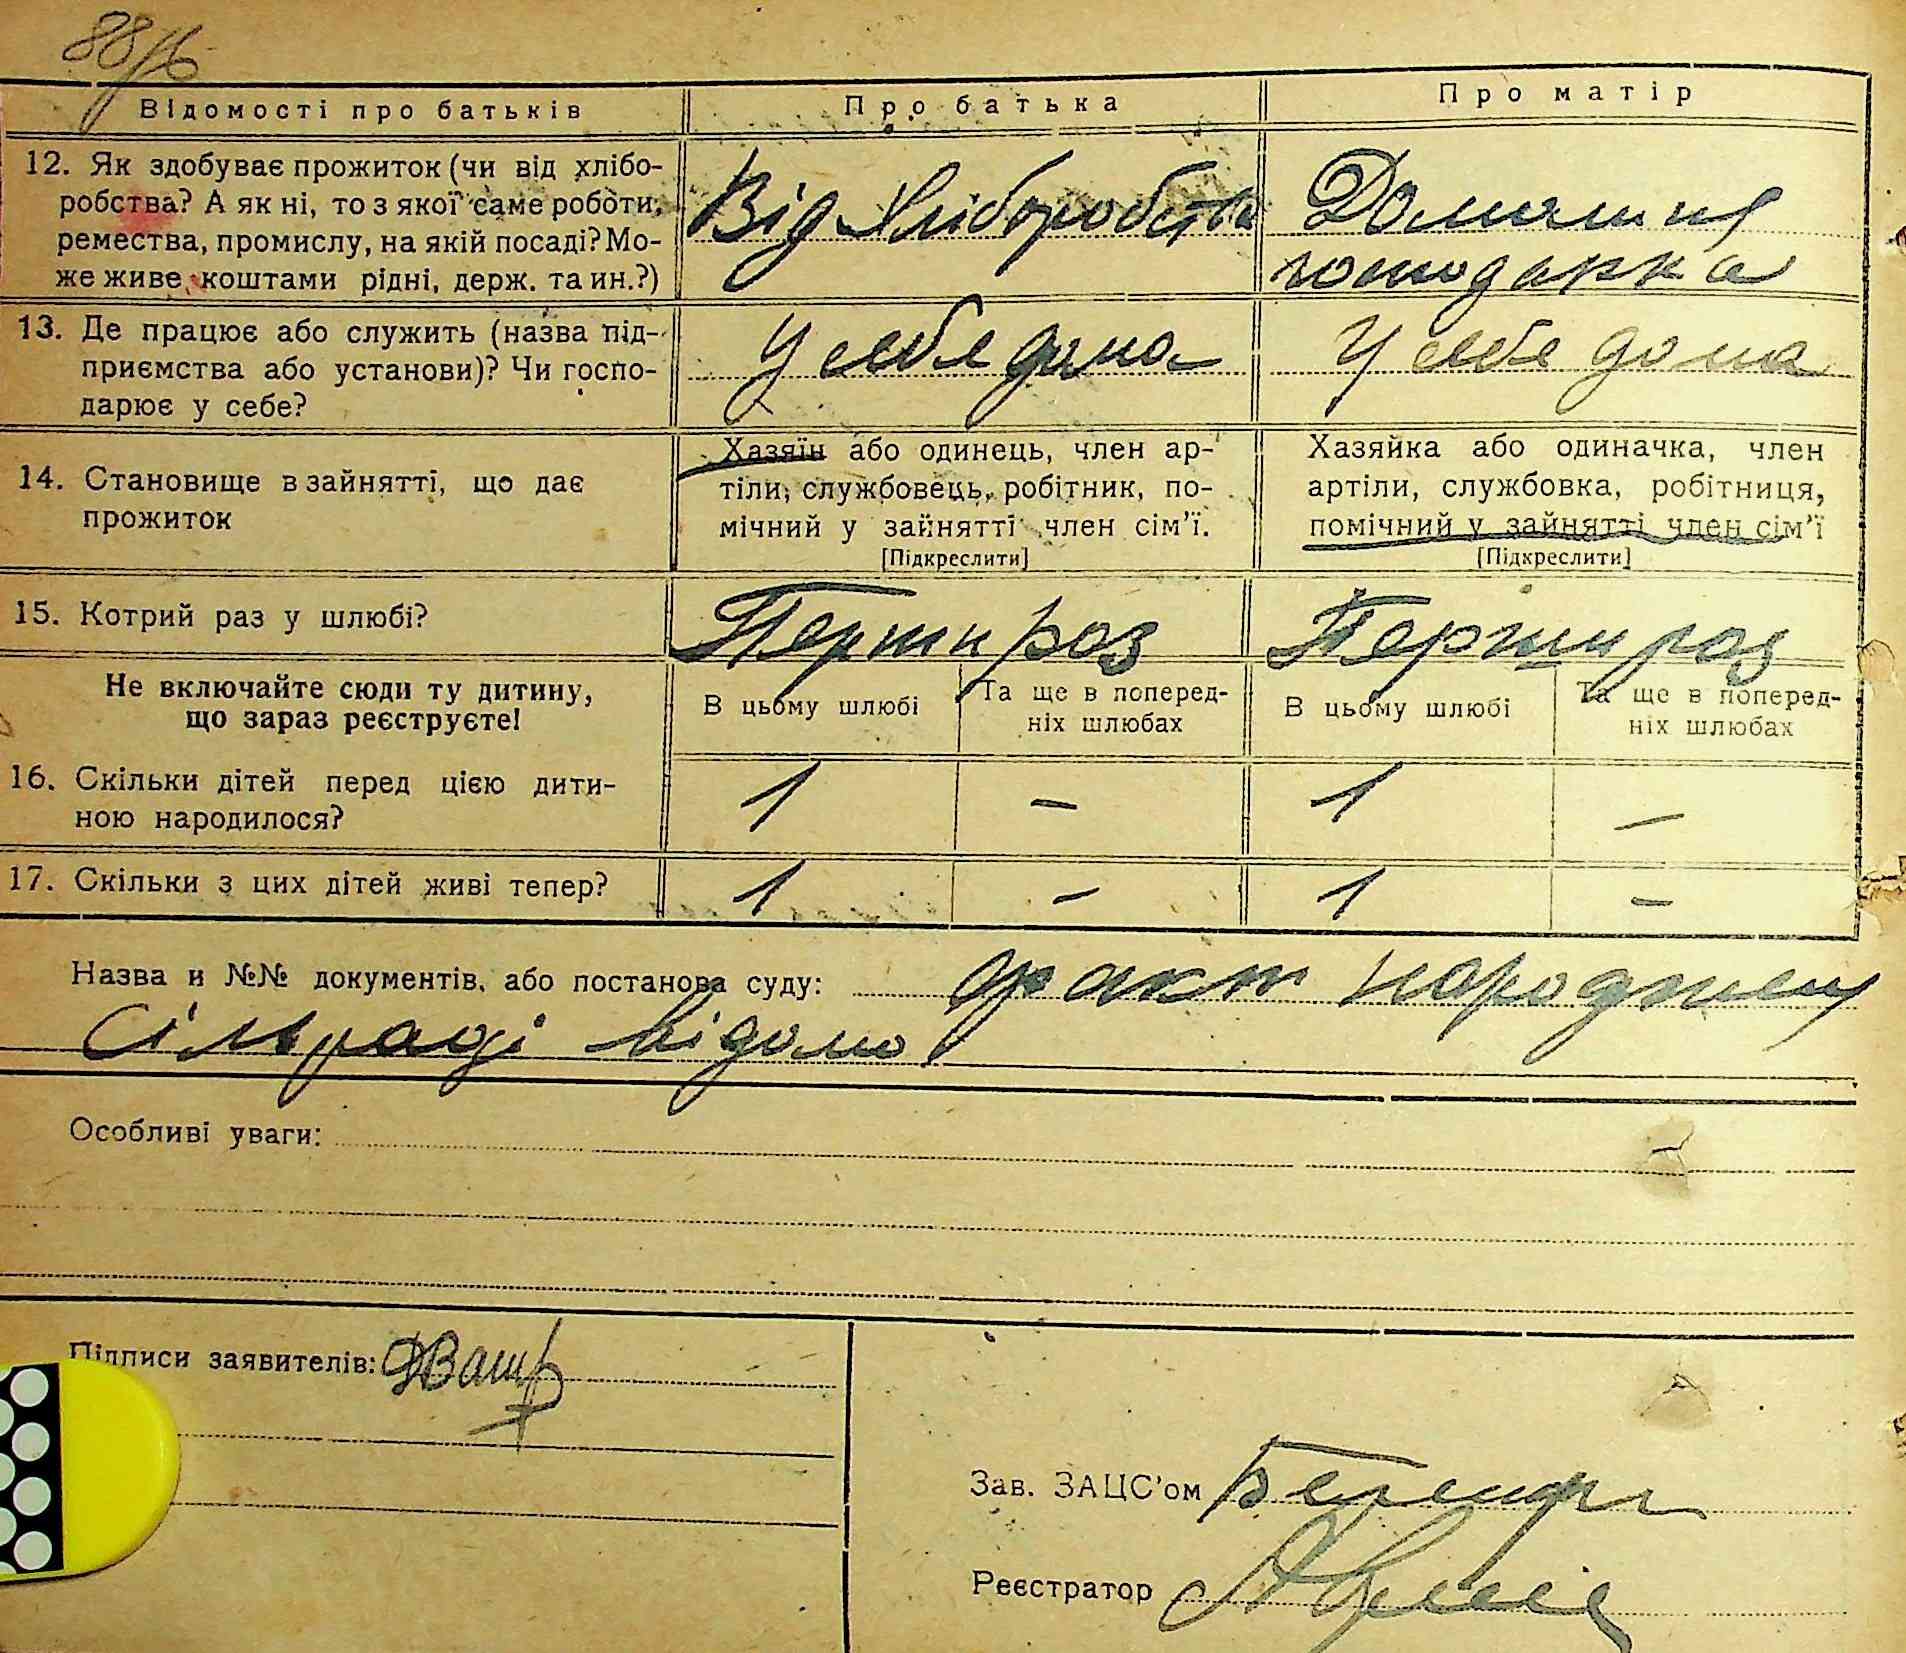 88/6
Відомості про батьків
Про батька
Про матір
12. Як здобуває прожиток (чи від хлібо-
робства? А як ні, то з якої саме роботи,
ремества, промислу, на якій посаді? Мо-
же живе коштами рідні, держ. та ин.?)
Від хліборобства
Домашня
господарка
13. Де працює або служить (назва під-
приємства або установи)? Чи госпо-
дарює у себе?
У себе дома
У себе дома
14. Становище в зайнятті, що дає
прожиток
Хазяїн або одинець, член ар-
тіли, службовець, робітник, по-
мічний у зайнятті член сім'ї.
[Підкреслити]
Хазяйка або одиначка, член
артіли, службовка, робітниця,
помічний у зайнятті член сім'ї
[Підкреслити]
15. Котрий раз у шлюбі?
Перши раз
Перши раз
Не включайте сюди ту дитину,
що зараз реєструєте!
В цьому шлюбі
Та ще в поперед-
ніх шлюбах
В цьому шлюбі
Та ще в поперед-
ніх шлюбах
16. Скільки дітей перед цією дити-
ною народилося?
1 – 1 –
17. Скільки з цих дітей живі тепер?
1 – 1 –
Назва и №№ документів, або постанова суду: факт народжен
Сільраді відомо
Особливі уваги: –
Підписи заявителів:
Зав. ЗАЦС'ом
Реєстратор